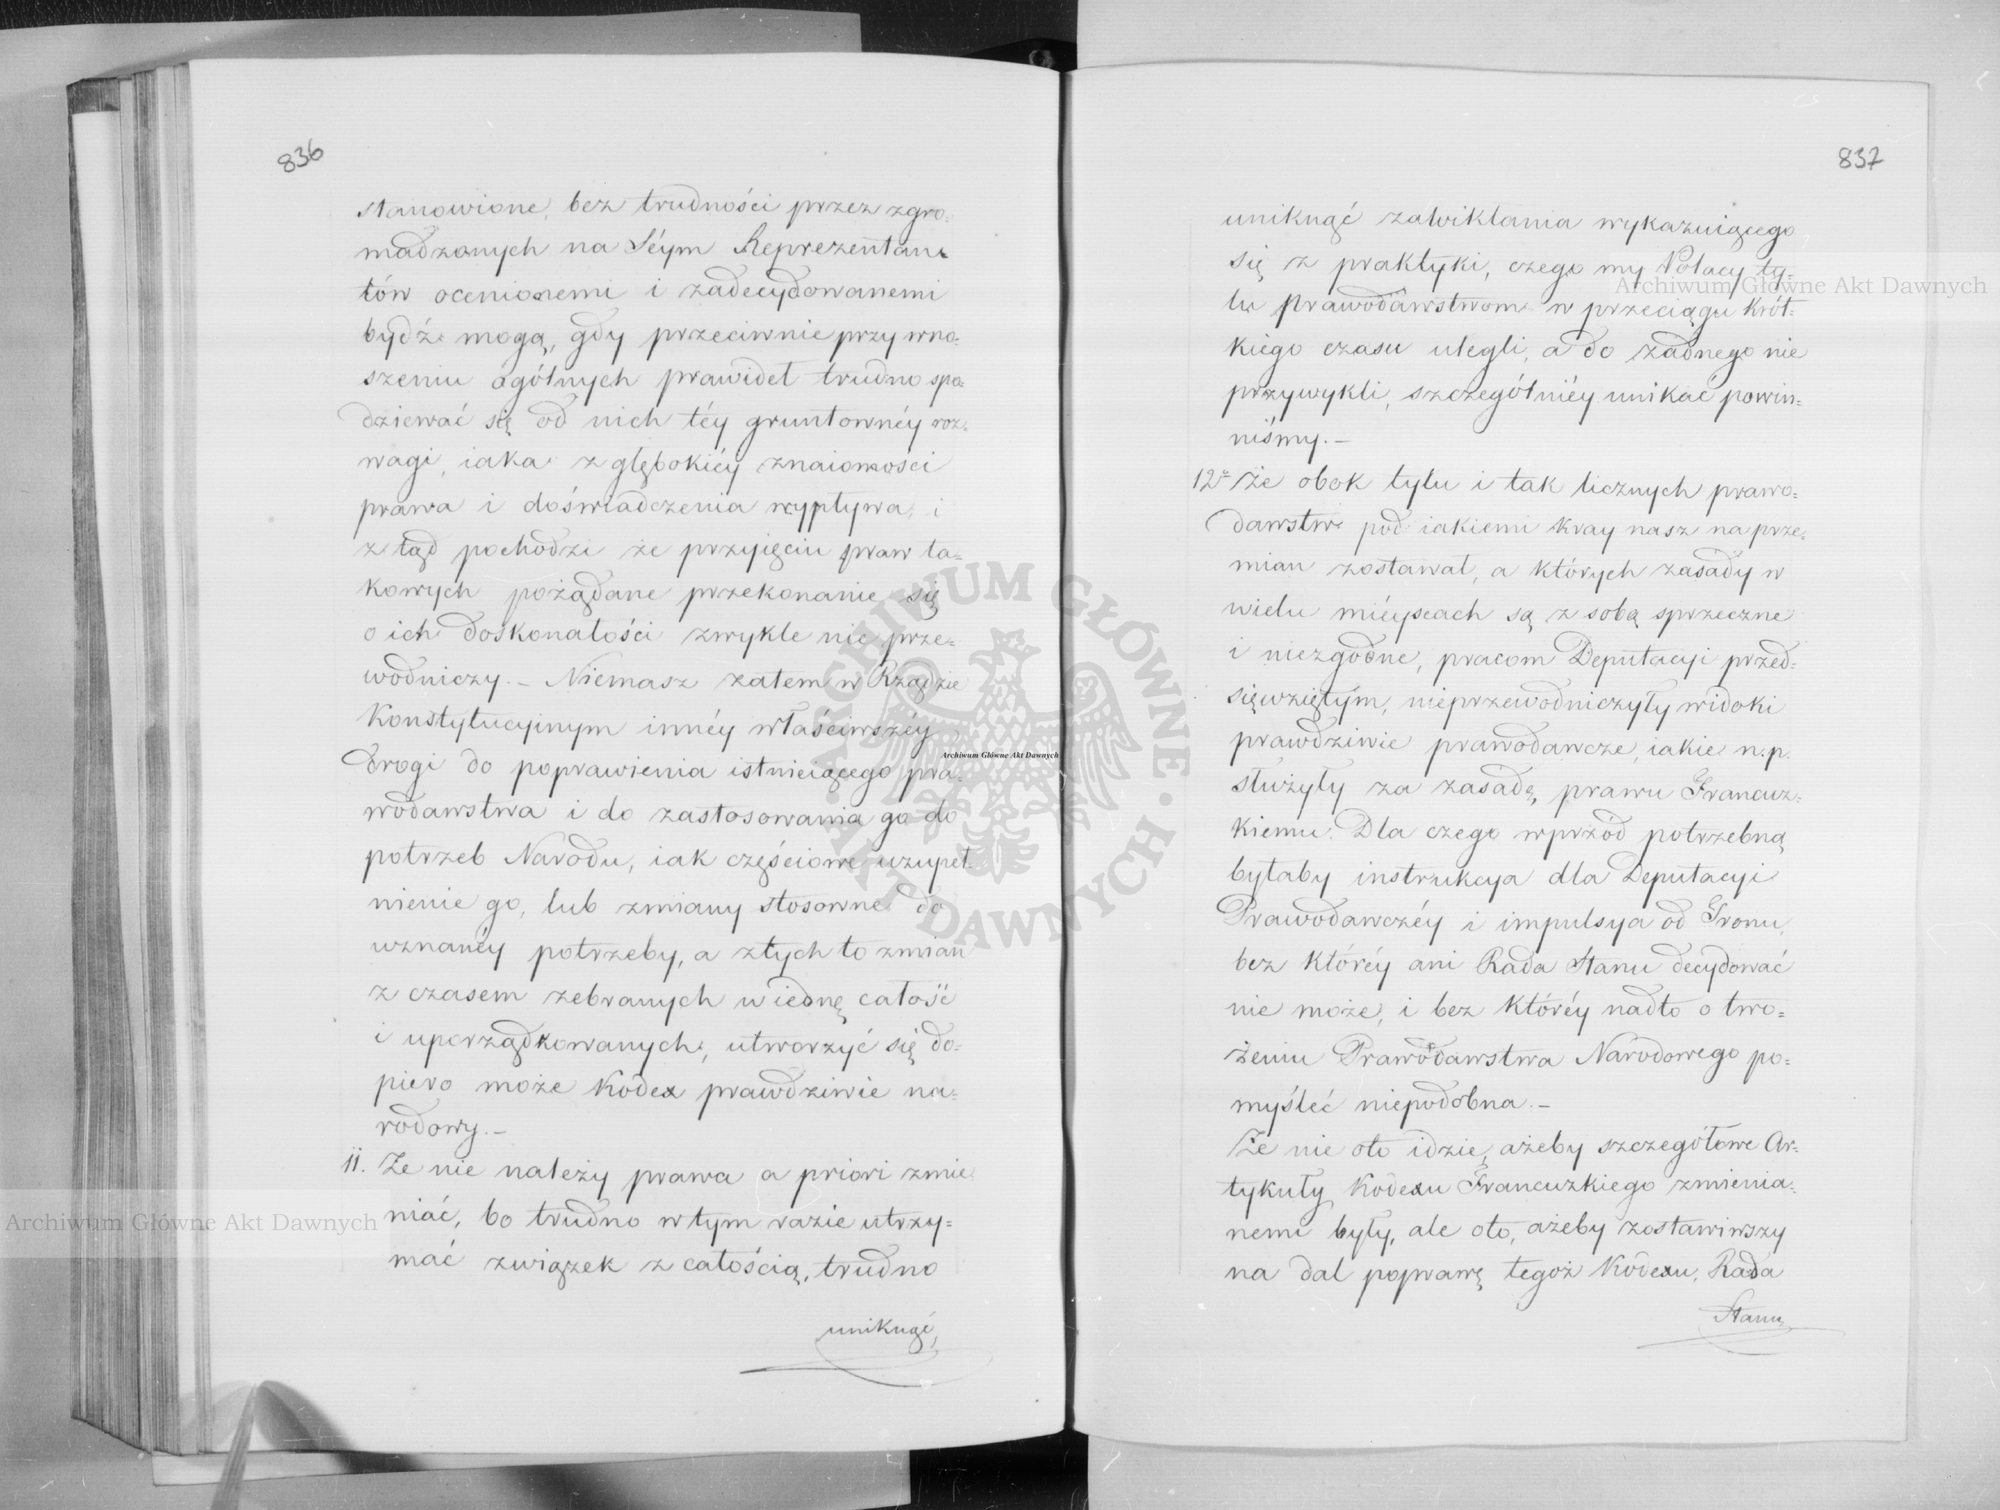 836
stanowione, bez trudności przez zgro=
madzonych na Séym Reprezentan=
tów ocenionemi i zadecydowanemi
bydź mogą, gdy przeciwnie przy wno=
szeniu ogólnych prawideł trudno spo=
dziewać się od nich téy gruntownéy roz=
wagi, iaka z głębokiéy znaiomości
prawa i doświadczenia wypływa, i
z tąd pochodzi że przyięciu praw ta=
kowych pożądane przekonanie się
o ich doskonałości zwykle nie prze=
wodniczy. — Niemasz zatem w Rządzie
Konstytucyinym innéy właściwszéy
drogi do poprawienia istnieiącego pra=
wodawstwa i do zastosowania go do
potrzeb Narodu, iak częściowe uzupeł=
nienie go, lub zmiany stosowne do
uznanéy potrzeby, a z tych to zmian
z czasem zebranych w iednę całość
i uporządkowanych, utworzyć się do=
piero może Kodex prawdziwie na=
rodowy. —
11. Że nie należy prawa a priori zmie=
niać, bo trudno w tym razie utrzy=
mać związek z całością, trudno
uniknąć,
837
uniknąć zawikłania wykazuiącego
się z praktyki, czego my Polacy ty=
lu prawodawstwom w przeciągu krót=
kiego czasu ulegli, a do żadnego nie
przywykli, szczególniéy unikać powin=
niśmy. —
12o Że obok tylu i tak licznych prawo=
dawstw pod iakiemi kray nasz na prze=
mian zostawał, a których zasady w
wielu mieyscach są z sobą sprzeczne
i niezgodne, pracom Deputacyi przed=
sięwziętym, nieprzewodniczyły widoki
prawdziwie prawodawcze, iakie n.p.
służyły za zasadę, prawu Francuz=
kiemu. Dla czego wprzód potrzebną
byłaby instrukcya dla Deputacyi
Prawodawczéy i impulsya od Tronu,
bez któréy ani Rada Stanu decydować
nie może, i bez któréy nadto o two=
żeniu Prawodawstwa Narodowego po=
myśleć niepodobna. —
Że nie oto idzie, ażeby szczegółowe Ar=
tykuły Kodexu Francuzkiego zmienia=
nemi były, ale oto, ażeby zostawiwszy
na dal poprawę tegoż Kodexu, Rada
Stanu
Archiwum Główne Akt Dawnych
Archiwum Główne Akt Dawnych
Archiwum Główne Akt Dawnych
ARCHIWUM GŁÓWNE · AKT DAWNYCH ·